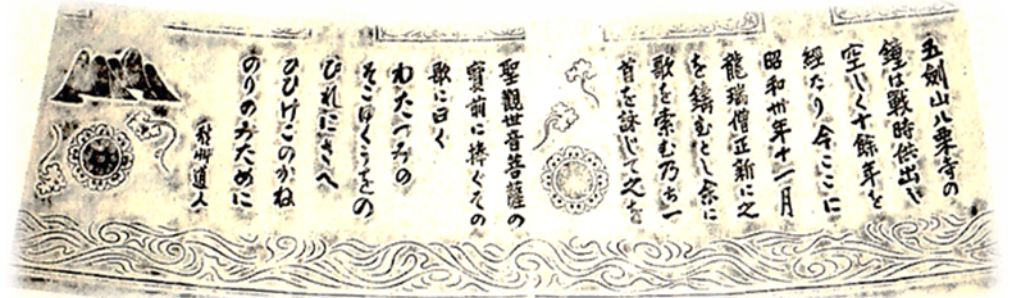 五劍山八栗寺の
鐘は戦時供出し
空しく十餘年を
經たり今ここに
昭和卅年十一月
龍瑞僧正新に之
を鑄むとし余に
歌を索む乃ち一
首を詠じて之を
聖觀世音菩薩の
寳前に捧ぐその
歌に曰く
わたつみの
そこゆくうをの
ひれにさへ
ひびけこのかね
のりのみために
秋艸道人